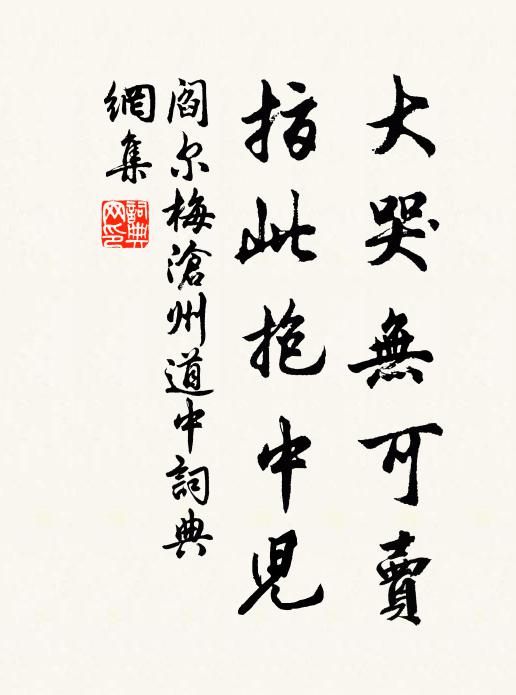 大哭無可賣
指此抱中児
閻尔梅滄州道中詞典
網集
詞典
网印